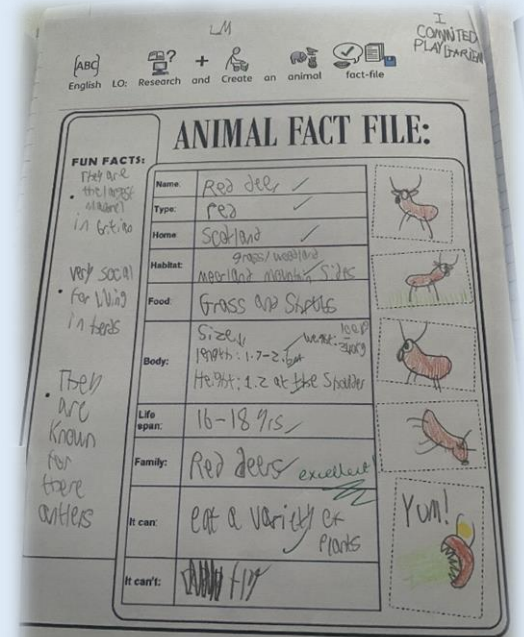 LM
I
COMMITED
PLAYGARISM
[ABC]
English LO: Research and Create an animal fact-file
ANIMAL FACT FILE:
FUN FACTS:
They are
the largest
mammal
in Britian
very social
for living
in herds
They
are
known
for
there
antlers
Name: Red deer
Type: red
Home: Scotland
Habitat: grass/woodland
moorland mountin sides
Food: Grass and Shrubs
Body: Size,
length: 1.7-2.6m
Height: 1.2 at the Shoulder
Life span: 16-18 yrs
Family: Red deers excellent!
It can: eat a variety of
Plants
It can't: fly
Yum!